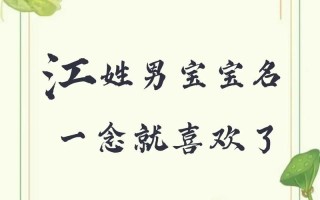 江姓男宝宝名
一念就喜欢了